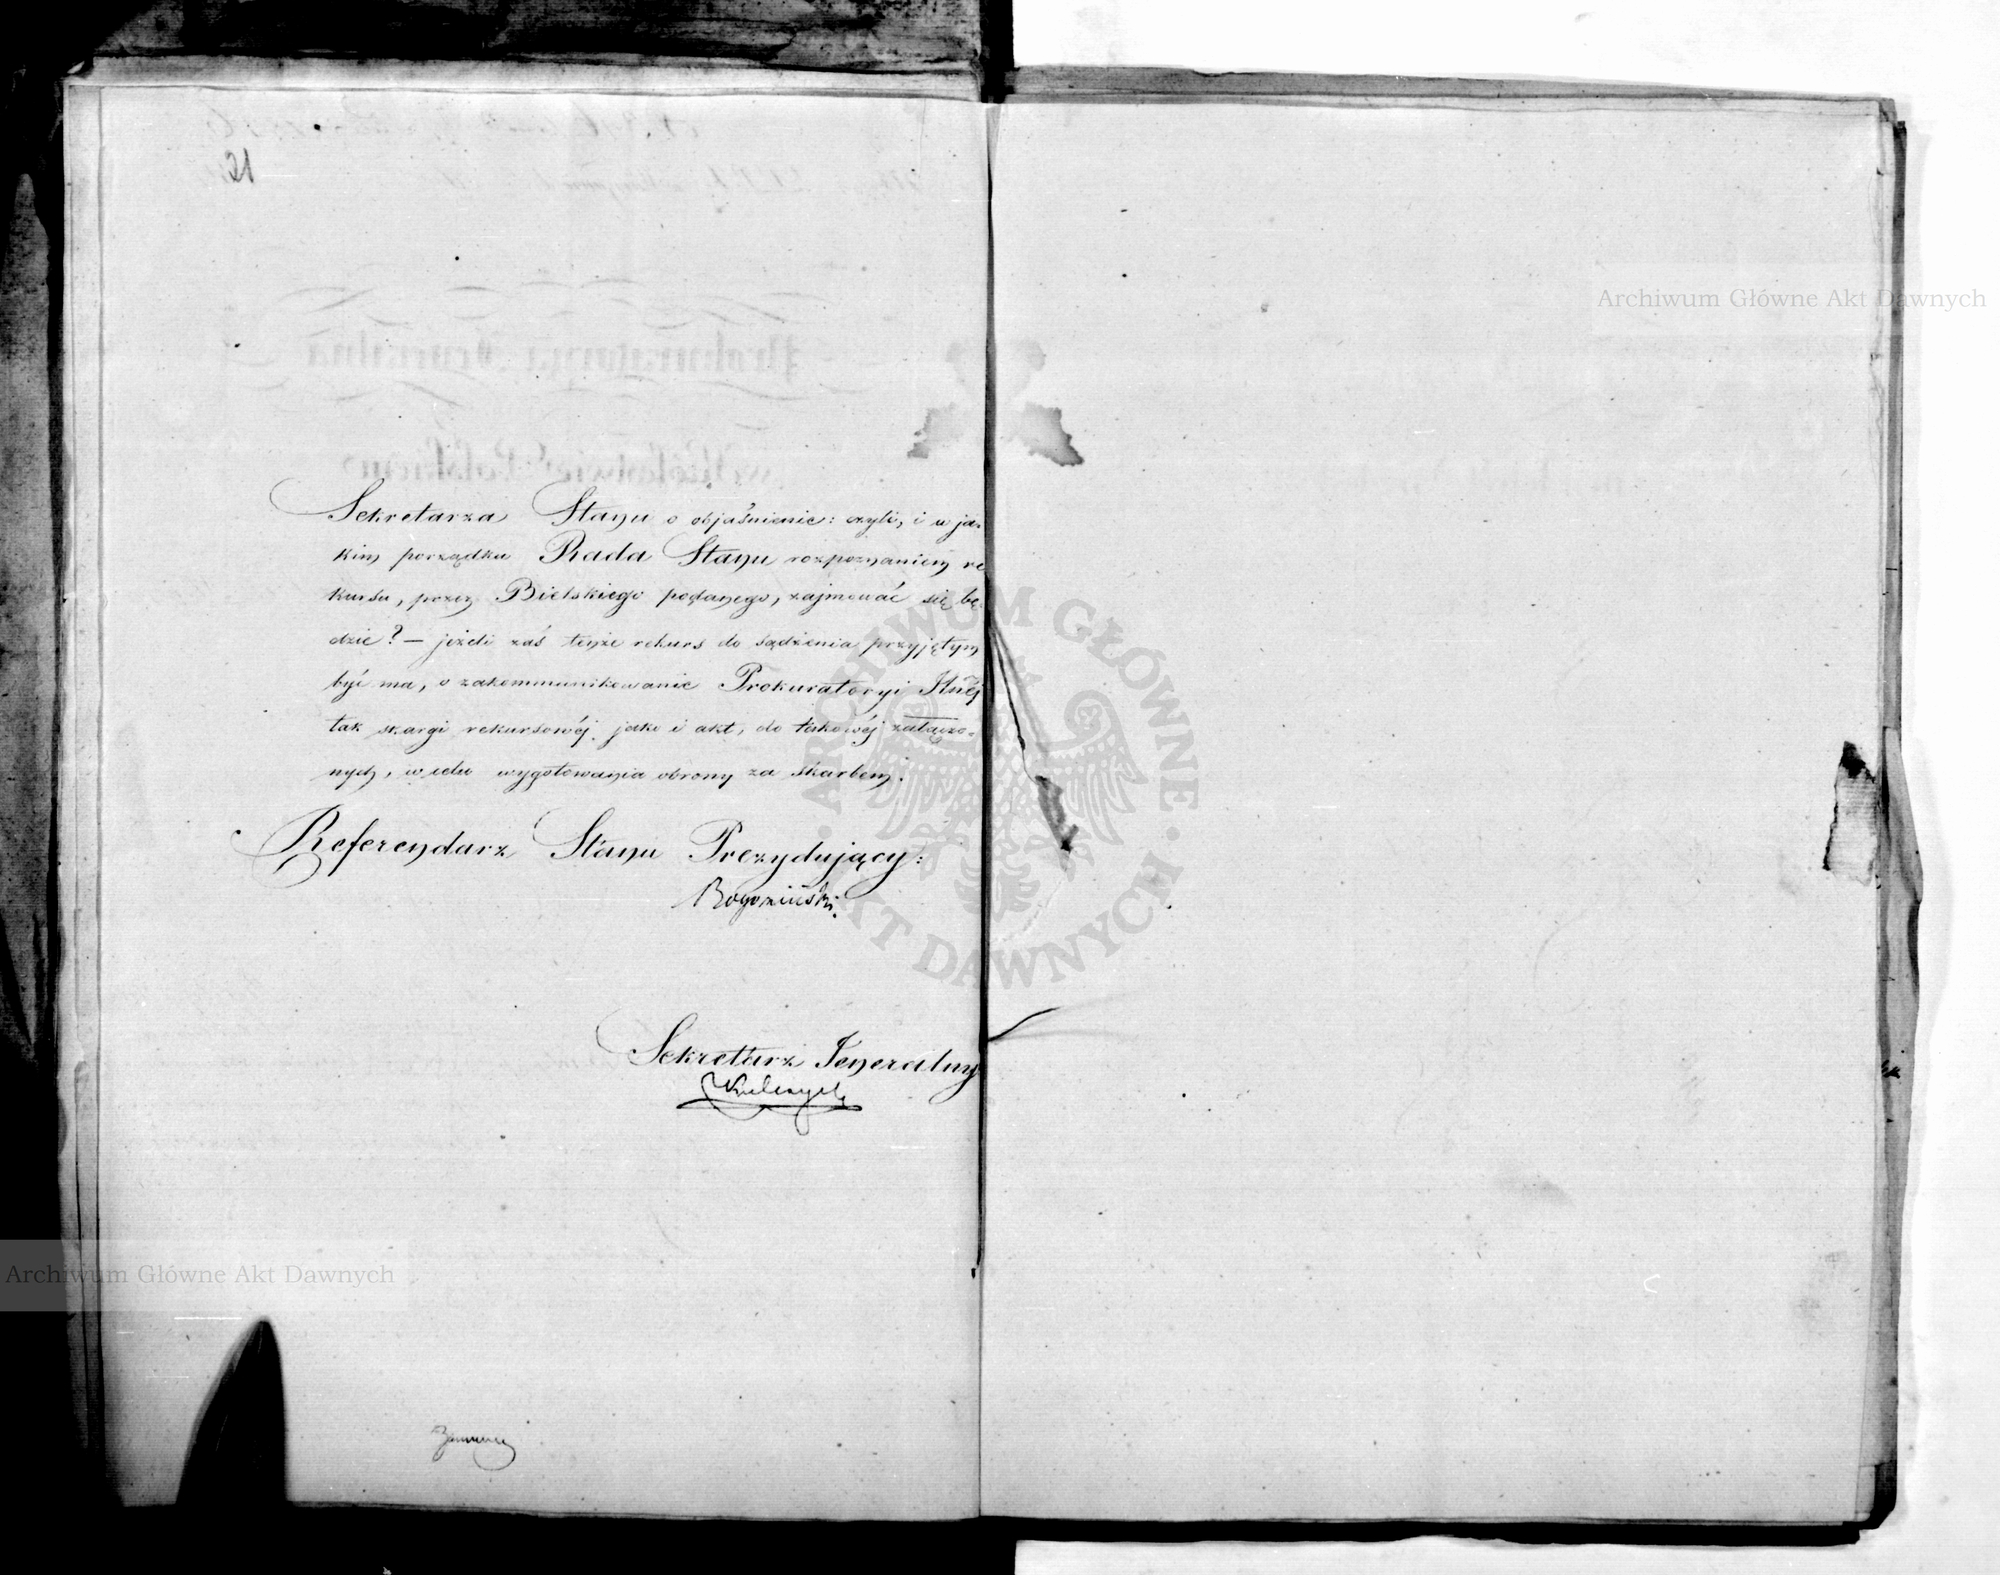 21
Sekretarza Stanu o objaśnienie: czyli, i w ja-
kim porządku Rada Stanu rozpoznaniem re
kursu, przez Bielskiego podanego, zajmować się bę-
dzie? — jeżeli zaś tenże rekurs do sądzenia przyjętym
być ma, o zakommunikowanie Prokuratoryi Jlnéj
tak skargi rekursowéj, jako i akt, do takowéj załączo-
nych, w celu wygotowania obrony za skarbem.
Referendarz Stanu Prezydujący:
Rogoziński.
Sekretarz Jeneralny
Archiwum Główne Akt Dawnych
ARCHIWUM GŁÓWNE
AKT DAWNYCH
Archiwum Główne Akt Dawnych